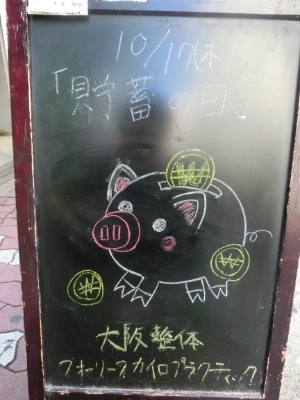 10/17(木)
「貯蓄の日」
大阪整体
フォーリーフカイロプラクティック